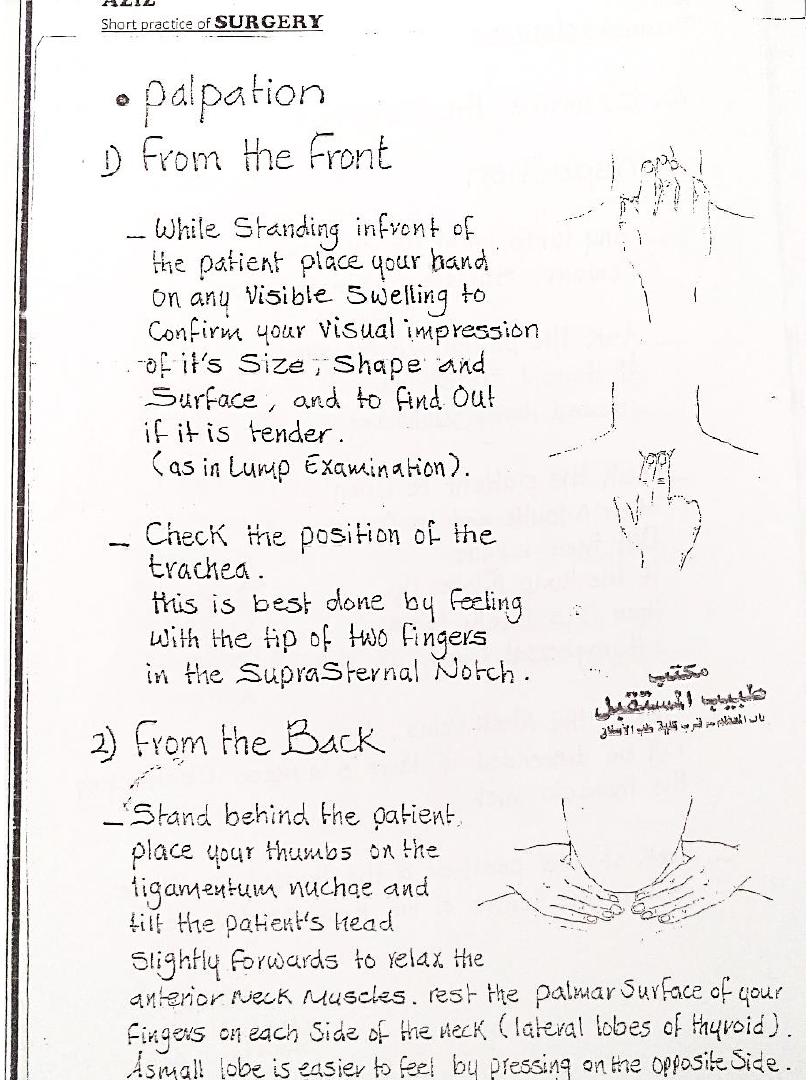 AZIZ
Short practice of SURGERY
• Palpation
1) From the Front
– While Standing infront of
the patient place your hand
on any Visible Swelling to
Confirm your Visual impression
of it's Size, Shape and
Surface, and to find Out
if it is tender.
(as in Lump Examination).
– Check the position of the
trachea.
this is best done by feeling
with the tip of two fingers
in the SupraSternal Notch.
مكتب
طبيب المستقبل
باب المعظم قرب كلية طب الأسنان
2) From the Back
– Stand behind the patient,
place your thumbs on the
ligamentum nuchae and
tilt the patient's head
Slightly forwards to relax the
anterior Neck Muscles. rest the palmar Surface of your
fingers on each Side of the neck (lateral lobes of thyroid).
A small lobe is easier to feel by pressing on the opposite Side.